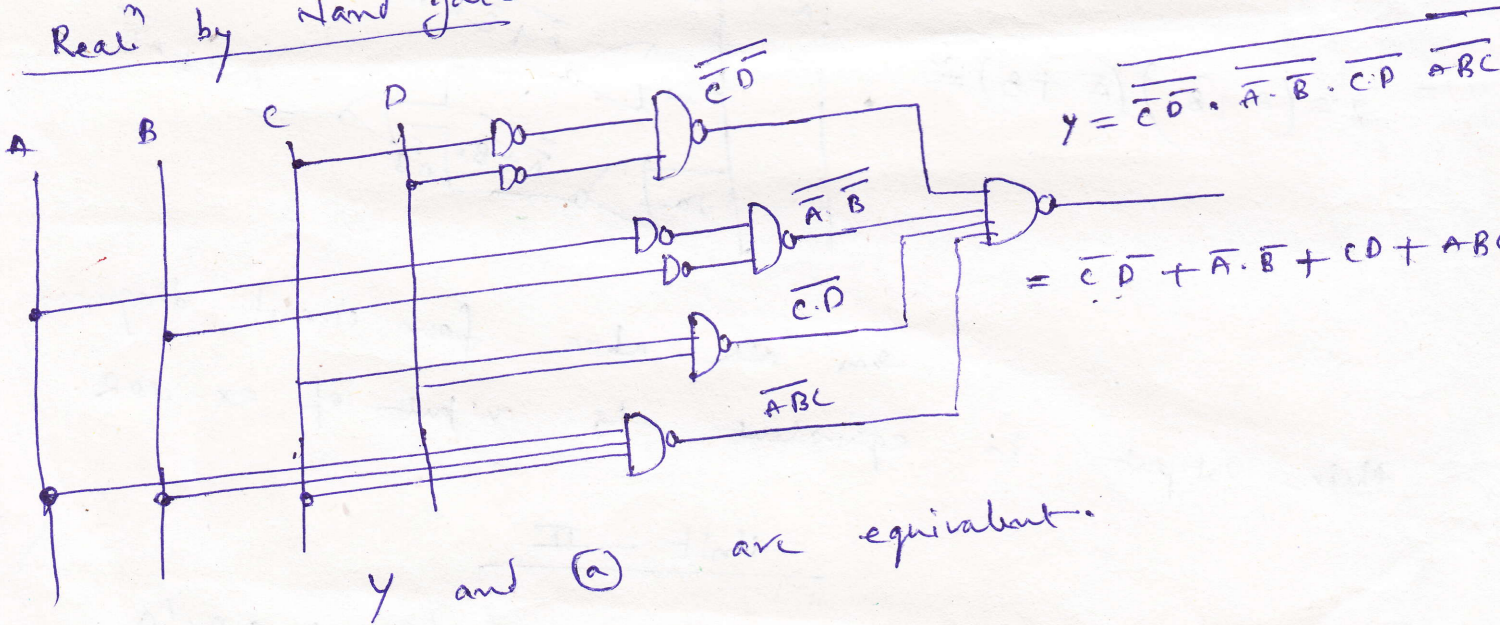 Realⁿ by Nand
A B C D
$\overline{\overline{C}\,\overline{D}}$
$y = \overline{\overline{\overline{C}\,\overline{D}} \cdot \overline{\overline{A}\cdot\overline{B}} \cdot \overline{C.D}\ \overline{ABC}}$
$\overline{\overline{A}\cdot\overline{B}}$
$= \overline{C}\,\overline{D} + \overline{A}\cdot\overline{B} + CD + ABC$
$\overline{C.D}$
$\overline{ABC}$
y and ⓐ are equivalent.